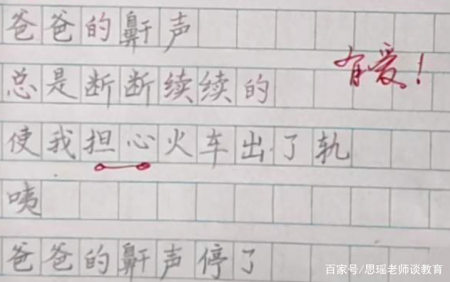 爸爸的鼾声
总是断断续续的
有爱!
使我担心火车出了轨
咦
爸爸的鼾声停了
百家号/思瑶老师谈教育